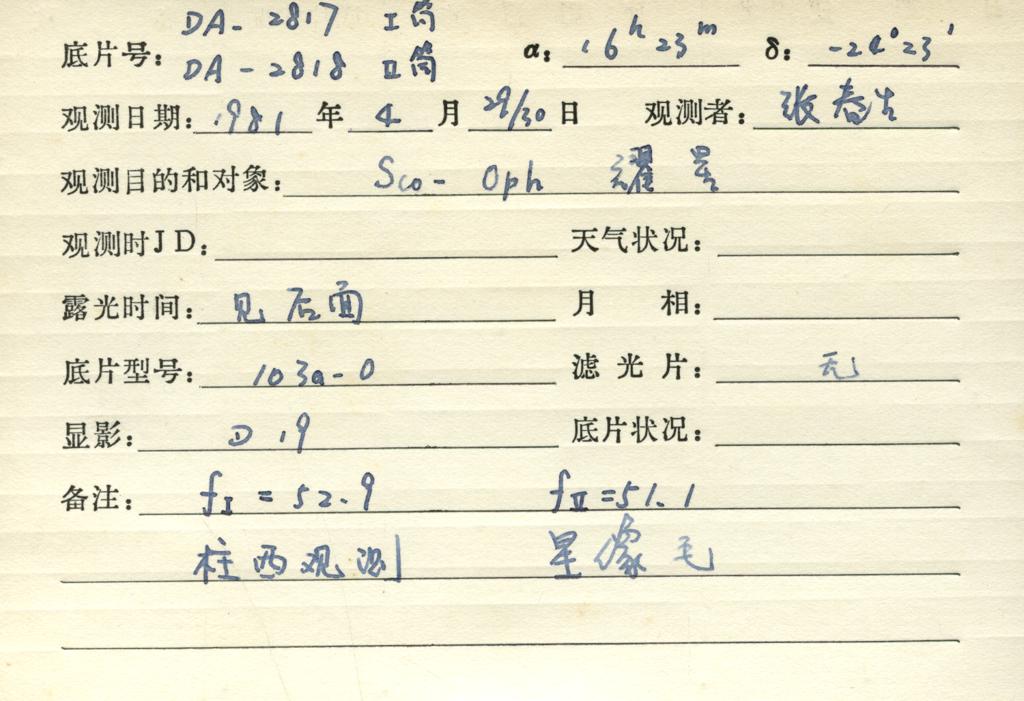 DA-2817 I筒
底片号: DA-2818 II筒 α: 16ʰ23ᵐ δ: -24°23′
观测日期: 1981 年 4 月 29/30 日 观测者: 张春生
观测目的和对象: Sco-Oph 耀星
观测时JD: 天气状况:
露光时间: 见后面 月 相:
底片型号: 103a-O 滤光片: 无
显影: D19 底片状况:
备注: fI = 52.9 fII = 51.1
柱西观测 星像毛